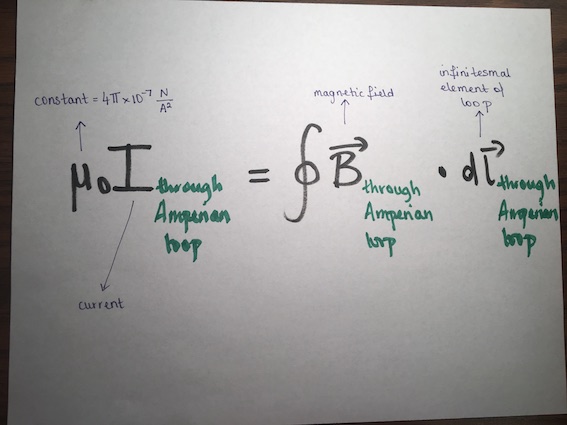 constant = 4π × 10⁻⁷ N/A²
magnetic field
infinitesmal
element of
loop
μ₀I through Amperian loop = ∮B⃗ through Amperian loop · dl⃗ through Amperian loop
current